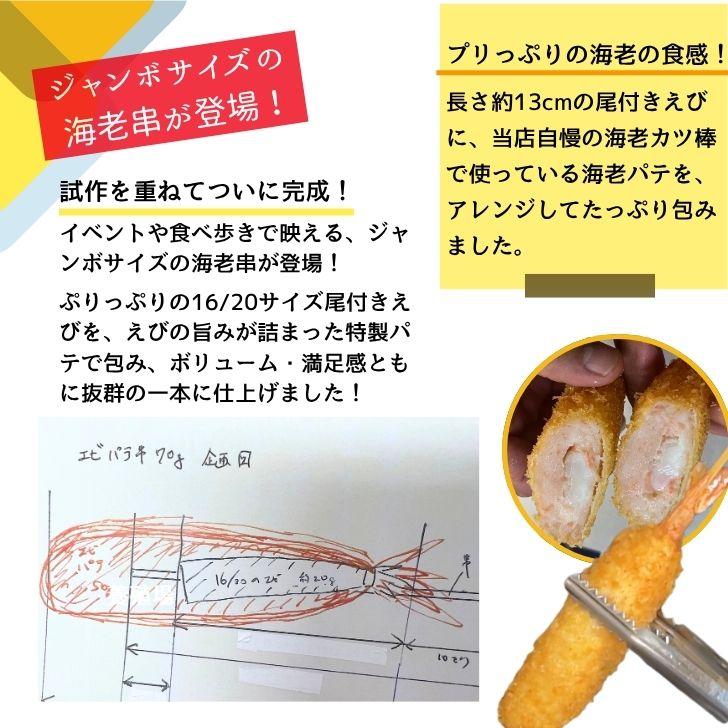 ジャンボサイズの
海老串が登場！
試作を重ねてついに完成！
イベントや食べ歩きで映える、ジャ
ンボサイズの海老串が登場！
ぷりっぷりの16/20サイズ尾付きえ
びを、えびの旨みが詰まった特製パ
テで包み、ボリューム・満足感とも
に抜群の一本に仕上げました！
プリっぷりの海老の食感！
長さ約13cmの尾付きえび
に、当店自慢の海老カツ棒
で使っている海老パテを、
アレンジしてたっぷり包み
ました。
エビパテ串70g 企画図
エビ
パテ
50g
16/20のエビ 約20g
串